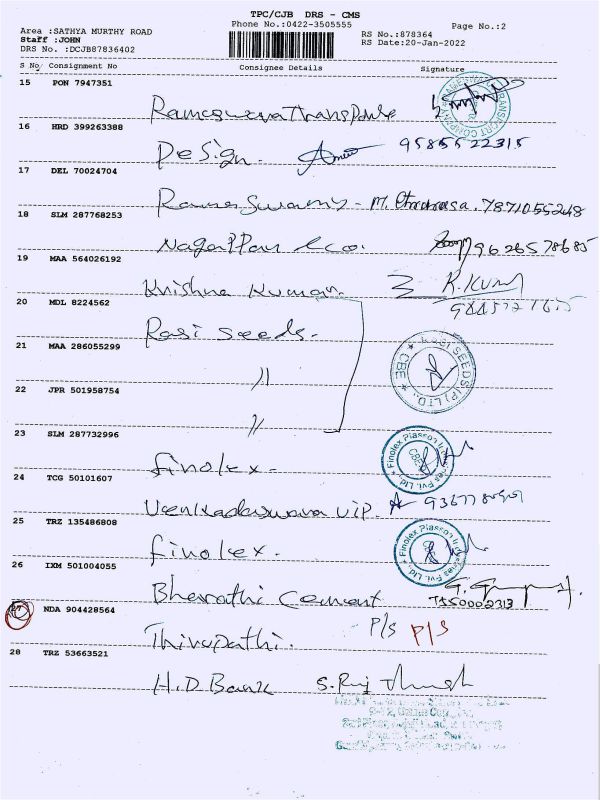 TPC/CJB DRS - CMS
Area :SATHYA MURTHY ROAD
Phone No.:0422-3505555
Page No.:2
Staff :JOHN
RS No.:878364
DRS No. :DCJB87836402
RS Date:20-Jan-2022
S No Consignment No Consignee Details Signature
15 PON 7947351
Rameswara Transports
16 HRD 399263388
Design. 9585522315
17 DEL 70024704
Ramaswamy - M. 7871055248
18 SLM 287768253
Nagappan & co. 9626578685
19 MAA 564026192
Krishna Kumar. K. Kumar
20 MDL 8224562
Rasi Seeds.
21 MAA 286055299
RASI SEEDS (P) LTD., ★ CBE ★
"
22 JPR 501958754
"
23 SLM 287732996
Finolex. Finolex Plasson Industries Pvt. Ltd. CBE
24 TCG 50101607
Venkadeswara VIP.
25 TRZ 135486808
Finolex. Finolex Plasson Industries Pvt. Ltd.
26 IXM 501004055
Bharathi Cement TSS0002313
27 NDA 904428564
Thirupathi. P/S P/S
28 TRZ 53663521
H.D Bank